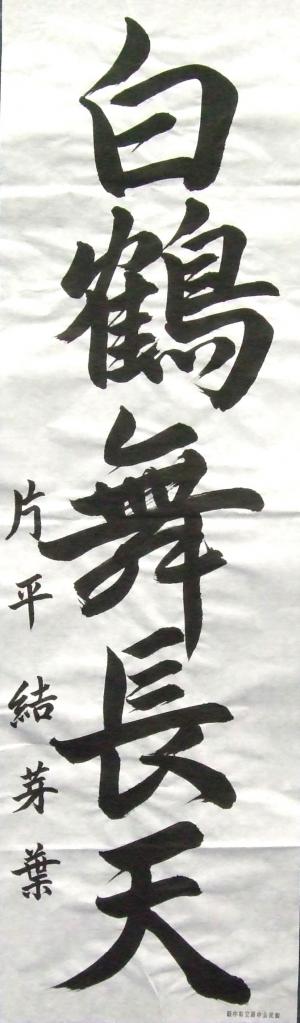 白鶴舞長天
片平結芽葉